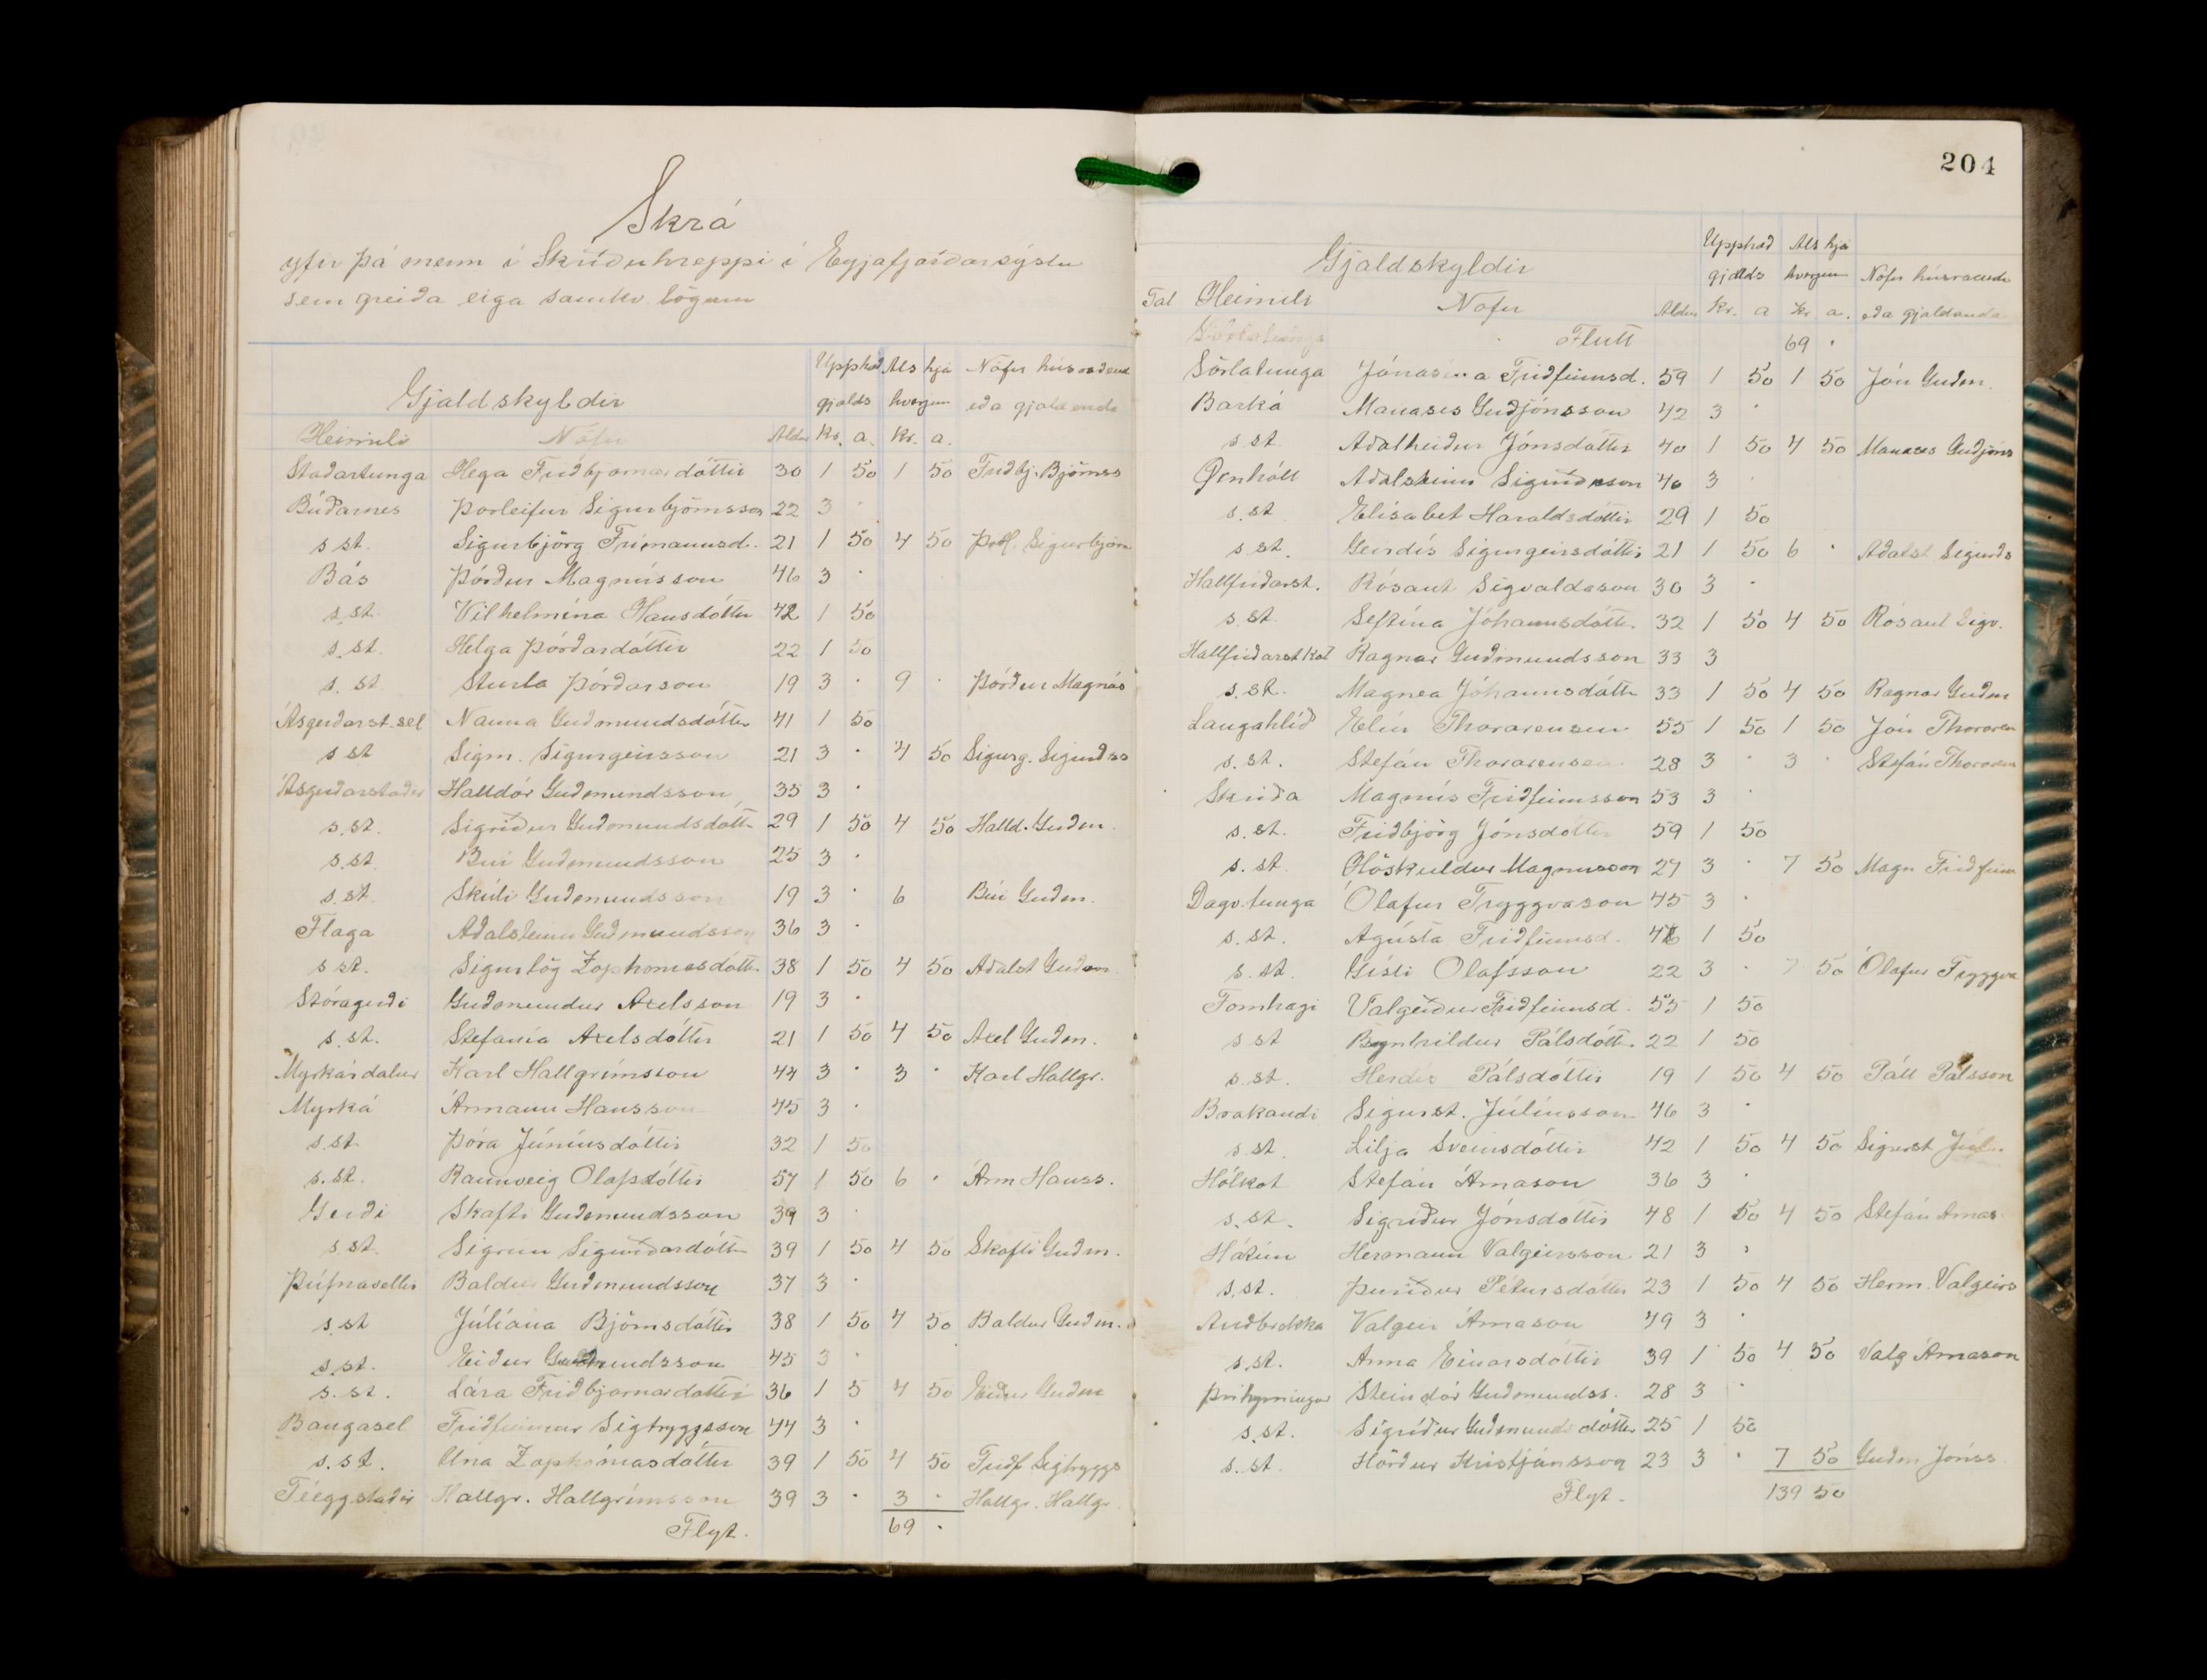 Skrá
yfir þá menn í Skriðuhreppi í Eyjafjarðarsýslu
sem greiða eiga samkv. lögum
Gjaldskyldir Upphæð gjalds Als hjá hverjum Nöfn húsráðend eða gjaldenda
Heimili Nöfn Aldur Kr. a. Kr. a.
Staðartunga Helga Friðbjarnardóttir 30 1 50 1 50 Friðbj. Björnss
Búðarnes Þorleifur Sigurbjörnsson 22 3 ·
s.st. Sigurbjörg Frímannsd. 21 1 50 4 50 Þorl. Sigurbjörn
Bás Þórður Magnússon 46 3 ·
s.st. Vilhelmína Hansdóttir 42 1 50
s.st. Helga Þórðardóttir 22 1 50
s.st Sturla Þórðarson 19 3 · 9 · Þórður Magnús
Ásgerðarst.sel Nanna Guðmundsdóttir 41 1 50
s st Sigm. Sigurgeirsson 21 3 · 4 50 Sigurg. Sigurðss
Ásgerðarstaðir Halldór Guðmundsson 35 3 ·
s.st. Sigríður Guðmundsdótt 29 1 50 4 50 Halld. Guðm.
s.st Búi Guðmundsson 25 3 ·
s.st. Skúli Guðmundsson 19 3 · 6 Búi Guðm.
Flaga Aðalsteinn Guðmundsson 36 3 ·
s st. Sigurlög Zophoníasdóttir 38 1 50 4 50 Aðalst Guðm
Stóragerði Guðmundur Axelsson 19 3 ·
s.st. Stefanía Axelsdóttir 21 1 50 4 50 Axel Guðm.
Myrkárdalur Karl Hallgrímsson 44 3 · 3 · Karl Hallgr.
Myrká Ármann Hansson 45 3 ·
s.st. Þóra Júníusdóttir 32 1 50
s.st. Rannveig Olafsdóttir 57 1 50 6 · Árm Hanss.
Gerði Skafti Guðmundsson 39 3 ·
s.st. Sigrún Sigurðardótt 39 1 50 4 50 Skafti Guðm.
Þúfnavellir Baldur Guðmundsson 37 3 ·
s.st Júlíana Björnsdóttir 38 1 50 4 50 Baldur Guðm.
s.st. Eiður Guðmundsson 45 3 ·
s.st. Lára Friðbjarnardóttir 36 1 5 4 50 Eiður Guðm
Baugasel Friðfinnur Sigtryggsson 44 3 ·
s.st. Una Zophóníasdóttir 39 1 50 4 50 Friðf Sigtryggs
Féeggstaðir Hallgr. Hallgrímsson 39 3 · 3 · Hallgr. Hallgr.
Flyt. 69 ·
204
Gjaldskyldir Upphæð gjalds Als hjá hverjum Nöfn húsraenda eða gjaldanda
Tal Heimili Nöfn Aldur Kr. a Kr a.
Sörlatunga Flutt 69 ·
Sörlatunga Jónasína Friðfinnsd. 59 1 50 1 50 Jón Guðm.
Barká Manases Guðjónsson 42 3 ·
s.st. Aðalheiður Jónsdóttir 40 1 50 4 50 Manases Guðjóns
Öxnhóll Aðalsteinn Sigurðsson 40 3 ·
s.st Elísabet Haraldsdóttir 29 1 50
s.st. Geirdís Sigurgeirsdóttir 21 1 50 6 · Aðalst Sigurðs
Hallfríðarst. Rósant Sigvaldason 30 3 ·
s.st. Seftína Jóhannsdótt. 32 1 50 4 50 Rósant Sigv.
Hallfríðarstkot Ragnar Guðmundsson 33 3
s.st. Magnea Jóhannsdótt 33 1 50 4 50 Ragnar Guðm
Laugahlíð Elín Thorarensen 55 1 50 1 50 Jón Thoraren
s.st. Stefán Thorarensen 28 3 · 3 · Stefán Thoraren
Skriða Magnús Friðfinnsson 53 3 ·
s.st. Friðbjörg Jónsdóttir 59 1 50
s.st. Höskuldur Magnusson 27 3 · 7 50 Magn Friðfinn
Dagv.tunga Ólafur Tryggvason 45 3 ·
s.st. Agústa Friðfinnsd. 1 50
s.st. Gísli Olafsson 22 3 · 7 50 Ólafur Tryggva
Fornhagi Valgerður Friðfinnsd. 55 1 50
s st Brynhildur Pálsdótt. 22 1 50
s.st. Herdís Pálsdóttir 19 1 50 4 50 Páll Pálsson
Brakandi Sigurst. Júlíusson 46 3 ·
s.st. Lilja Sveinsdóttir 42 1 50 4 50 Sigurst Júl.
Hólkot Stefán Árnason 36 3 ·
s.st. Sigríður Jónsdóttir 48 1 50 4 50 Stefán Arnas
Hátún Hermann Valgeirsson 21 3 ·
s.st. Þuríður Pétursdóttir 23 1 50 4 50 Herm. Valgeirs
Auðbrekka Valgeir Árnason 49 3 ·
s.st. Anna Einarsdóttir 39 1 50 4 50 Valg Árnason
Þríhyrningur Steindór Guðmundss. 28 3 ·
s.st. Sigríður Guðmundsdóttir 25 1 50
s.st. Hörður Kristjánsson 23 3 · 7 50 Guðm Jónss
Flyt. 139 50